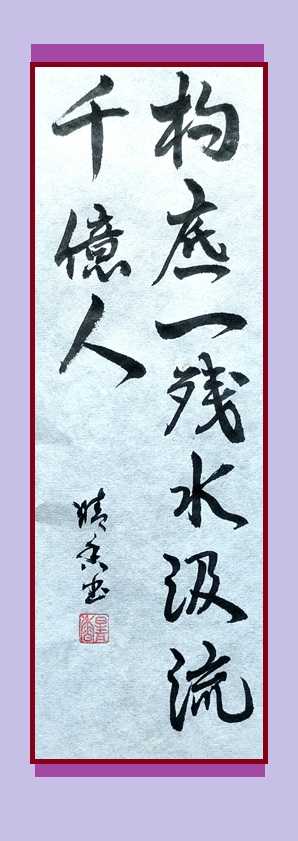 杓底一残水汲流
千億人
晴香書